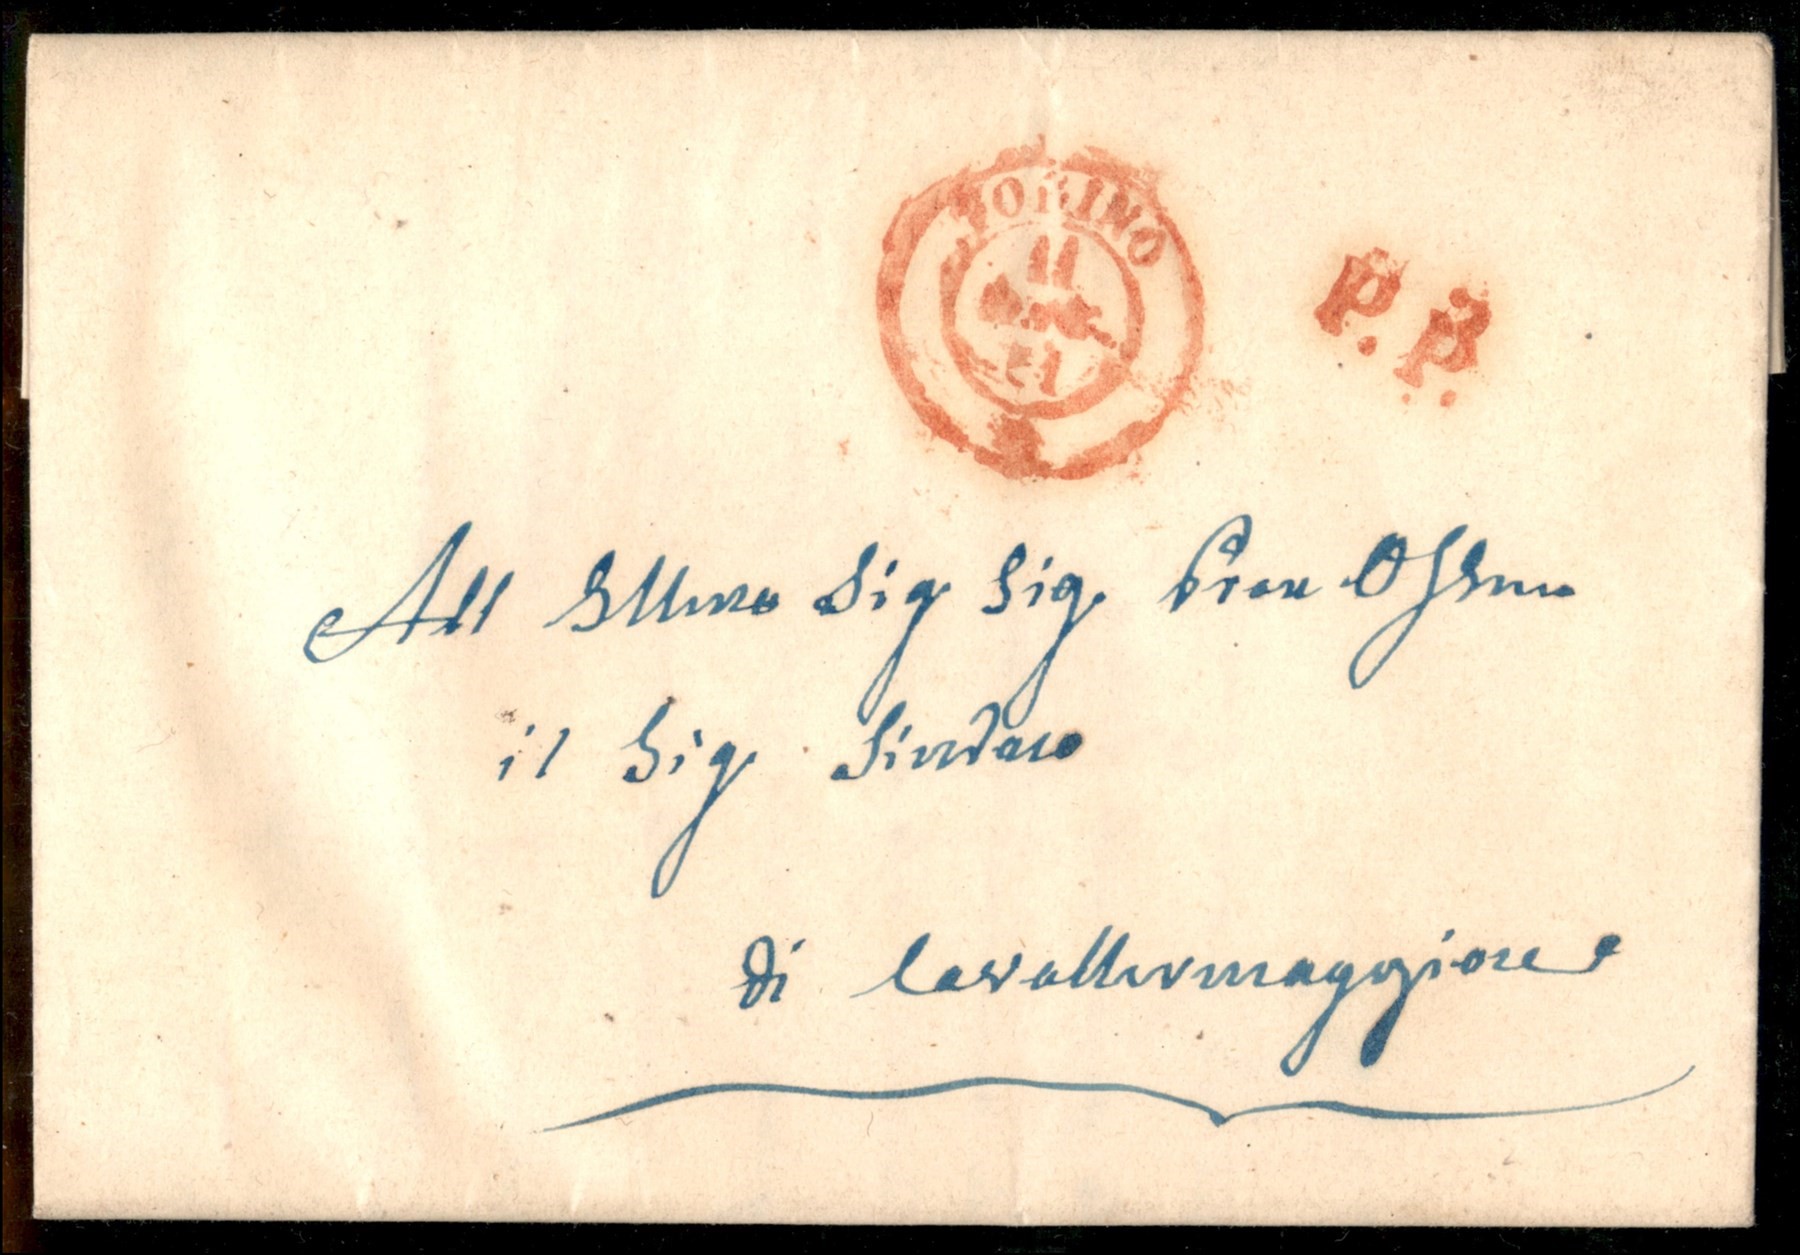 TORINO
11
51
P. P.
All Illmo Sig. Sig. Pron Ossmo
il Sig. Sindaco
di Cavallermaggiore